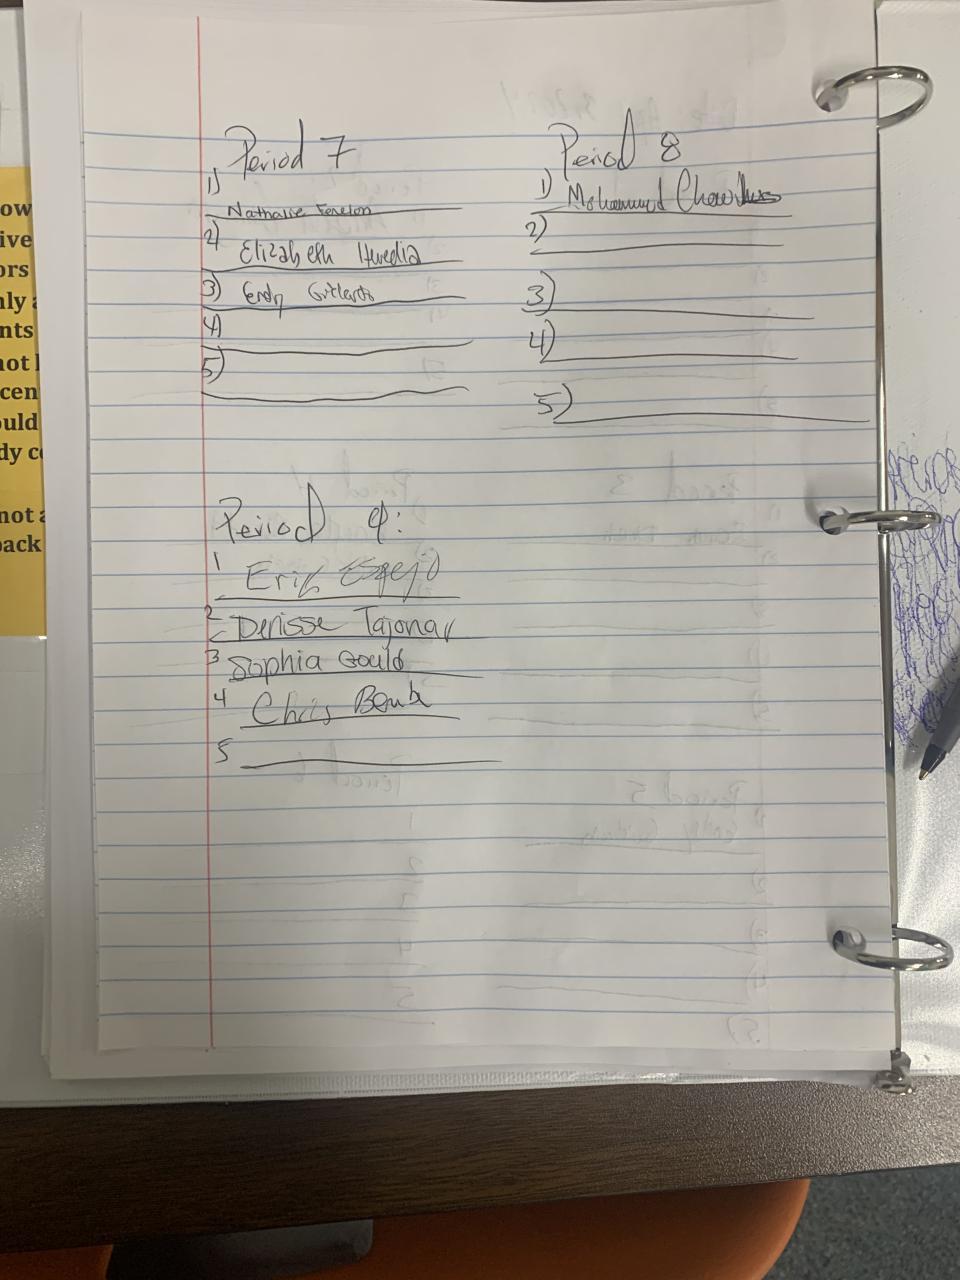 Period 7
1) Nathalie Fenelon
2) Elizabeth Heredia
3)
4)
5)
Period 8
1) Mohammed
2)
3)
4)
5)
Period 9:
1 Erik Espejo
2 Denisse Tajonar
3 Sophia Gould
4 Chris
5
ow
ive
ors
nly a
nts
not
cen
ould
dy c
not a
back